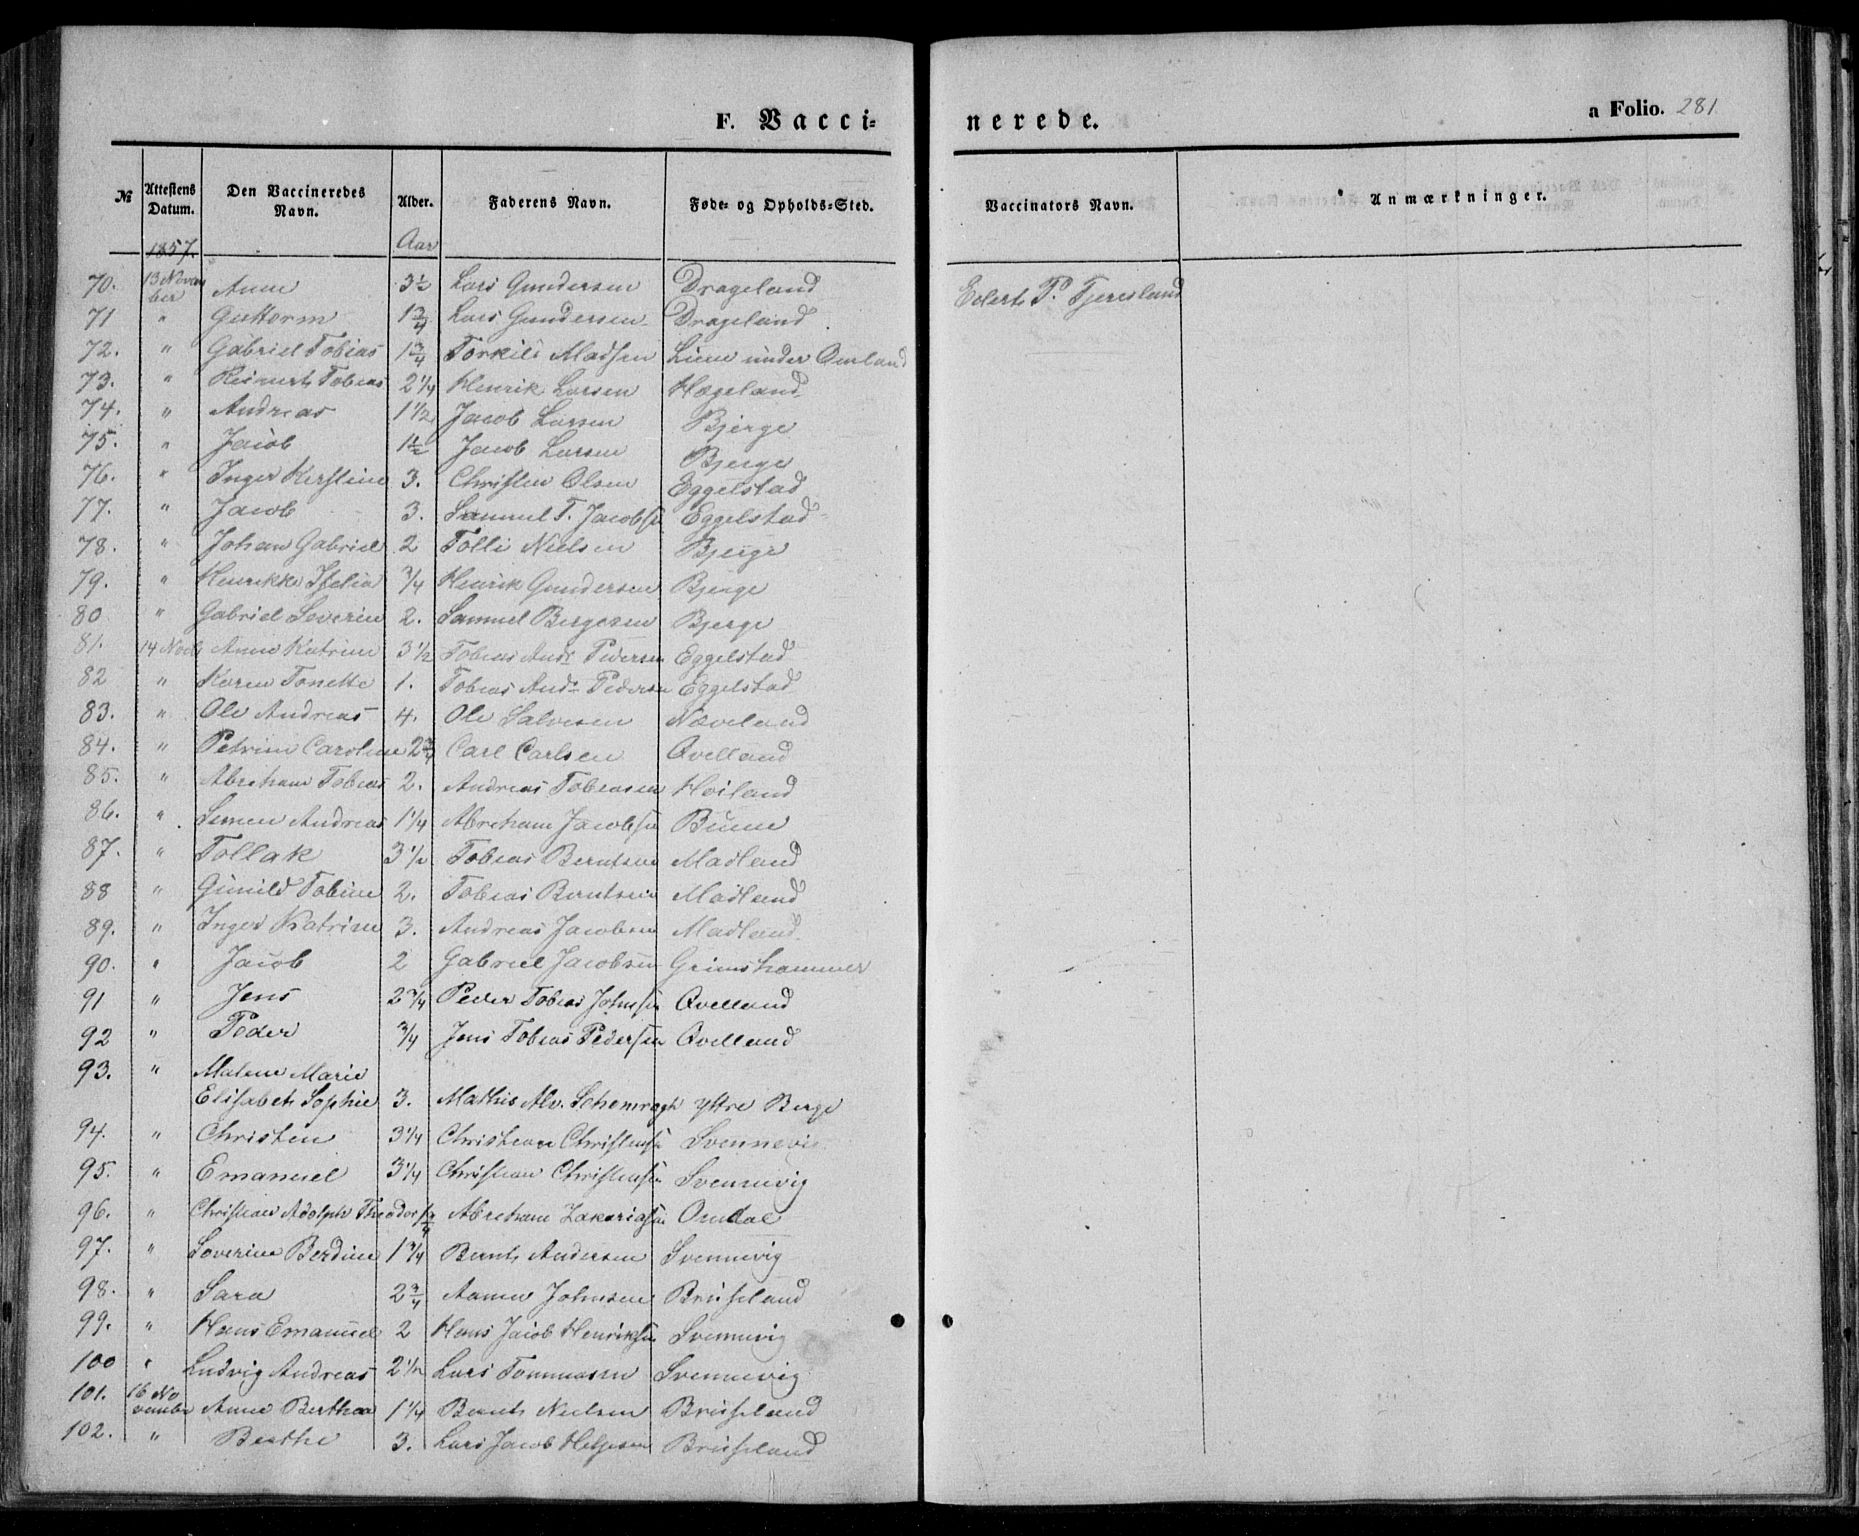 F. Vacci-
nerede.
a Folio. 281
№ Attestens Datum. Den Vaccineredes Navn. Alder. Faderens Navn. Føde- og Opholds-Sted. Vaccinators Navn. Anmærkninger.
1857. Aar
70. 13 November Anne 3½ Lars Gundersen Drageland Eilert P. Tjersland
71 " Guttorm 1¾ Lars Gundersen Drageland
72. " Gabriel Tobias 1¾ Torkild Madsen Liene under Omland
73. " Reinert Tobias 2¼ Henrik Larsen Hægeland
74. " Andreas 1½ Jacob Larsen Bjerge
75. " Jacob 1½ Jacob Larsen Bjerge
76. " Inger Kirstine 3. Christen Olsen Eggelstad
77. " Jacob 3. Samuel T. Jacobsen Eggelstad
78. " Johan Gabriel 2 Tolli Nielsen Bjerge
79. " Henrikke Itelia ¾ Henrik Gundersen Bjerge
80 " Gabriel Severin 2. Samuel Birgesen Bjerge
81. 14 Novb Anne Katrine 3½ Tobias Andr Pedersen Eggelstad
82 " Karen Tonette 1. Tobias Andr Pedersen Eggelstad
83. " Ole Andreas 4. Ole Salvesen Næveland
84. " Petrine Caroline 2¾ Carl Carlsen Qvelland
85. " Abraham Tobias 2. Andreas Tobiasen Høiland
86. " Simen Andreas 1¼ Abraham Jacobsen Buene
87. " Tollak 3½ Tobias Berntsen Madland
88 " Gunild Tobine 2. Tobias Berntsen Madland
89. " Inger Katrine 3. Andreas Jacobsen Madland
90. " Jacob 2 Gabriel Jacobsen Grimshammer
91 " Jens 2¾ Peder Tobias Johnsen Qvelland
92 " Peder ¾ Jens Tobias Pedersen Qvelland
93. " Malene Marie
Elisabeth Sophie 3. Mathis Alv. Yttre Berge
94. " Christen 3¼ Christian Christensen Svennevig
95. " Emanuel 3¼ Christian Christensen Svennevig
96. " Christian Adolph Theodor ¾ Abraham Zakariasen Omdal
97. " Severine Berdine 1¾ Bernt Andersen Svennevig
98. " Sara 2¾ Aanen Johnsen Bruseland
99. " Hans Emanuel 2 Hans Jacob Henriksen Svennevig
100 " Ludvig Andreas 2½ Lars Tommasen Svennevig
101. 16 November Anne Berthea 1¼ Bernt Nielsen Bruseland
102. " Berthe 3. Lars Jacob Helgesen Bruseland